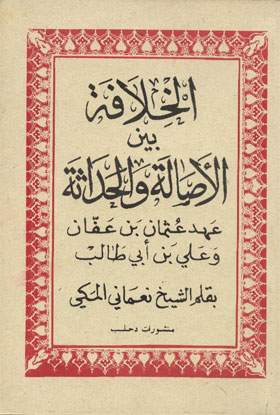 الخِلَافَة
بين
الأصَالَة والحَدَاثة
عَهد عُثمَان بن عَفّان
وَعَلي بن أبي طَالب
بقلم الشيخ نعماني المكي
منشورات دحلب